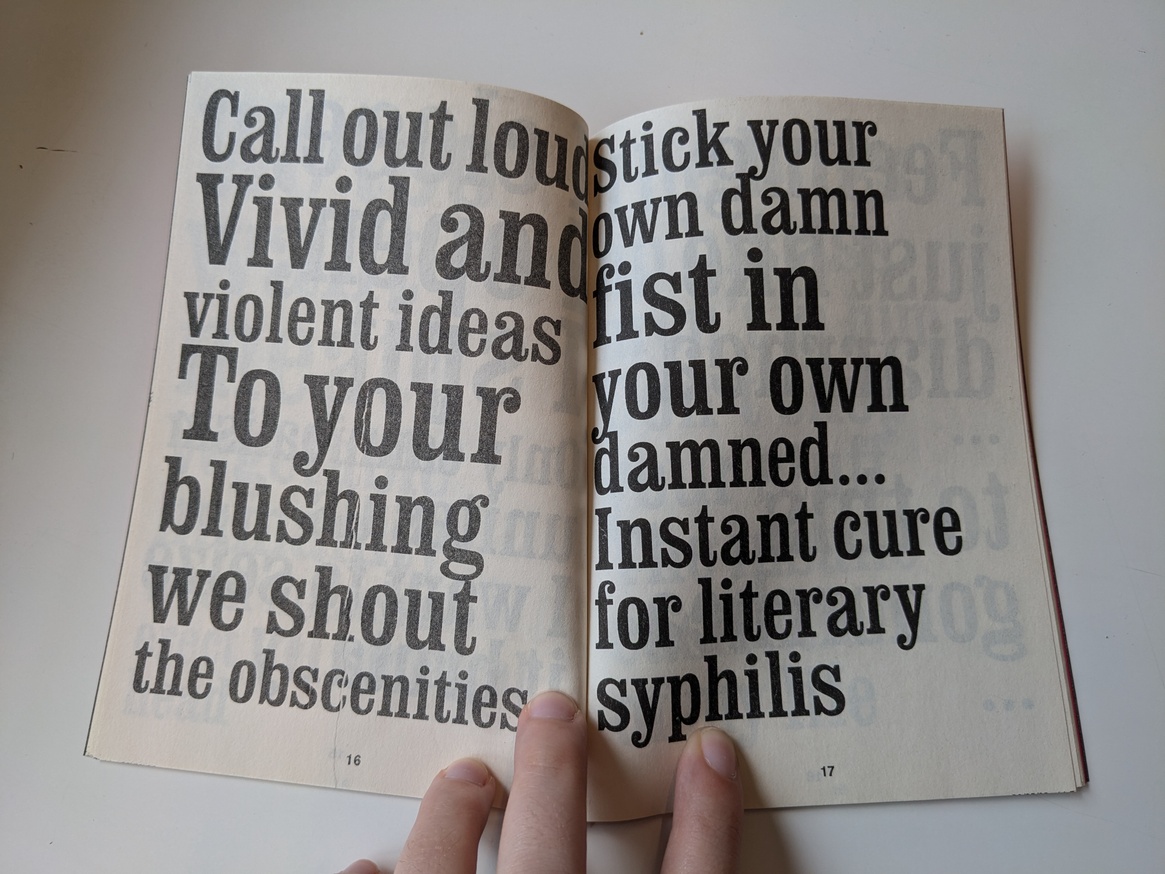 Call out loud
Vivid and
violent ideas
To your
blushing
we shout
the obscenities
16
Stick your
own damn
fist in
your own
damned...
Instant cure
for literary
syphilis
17